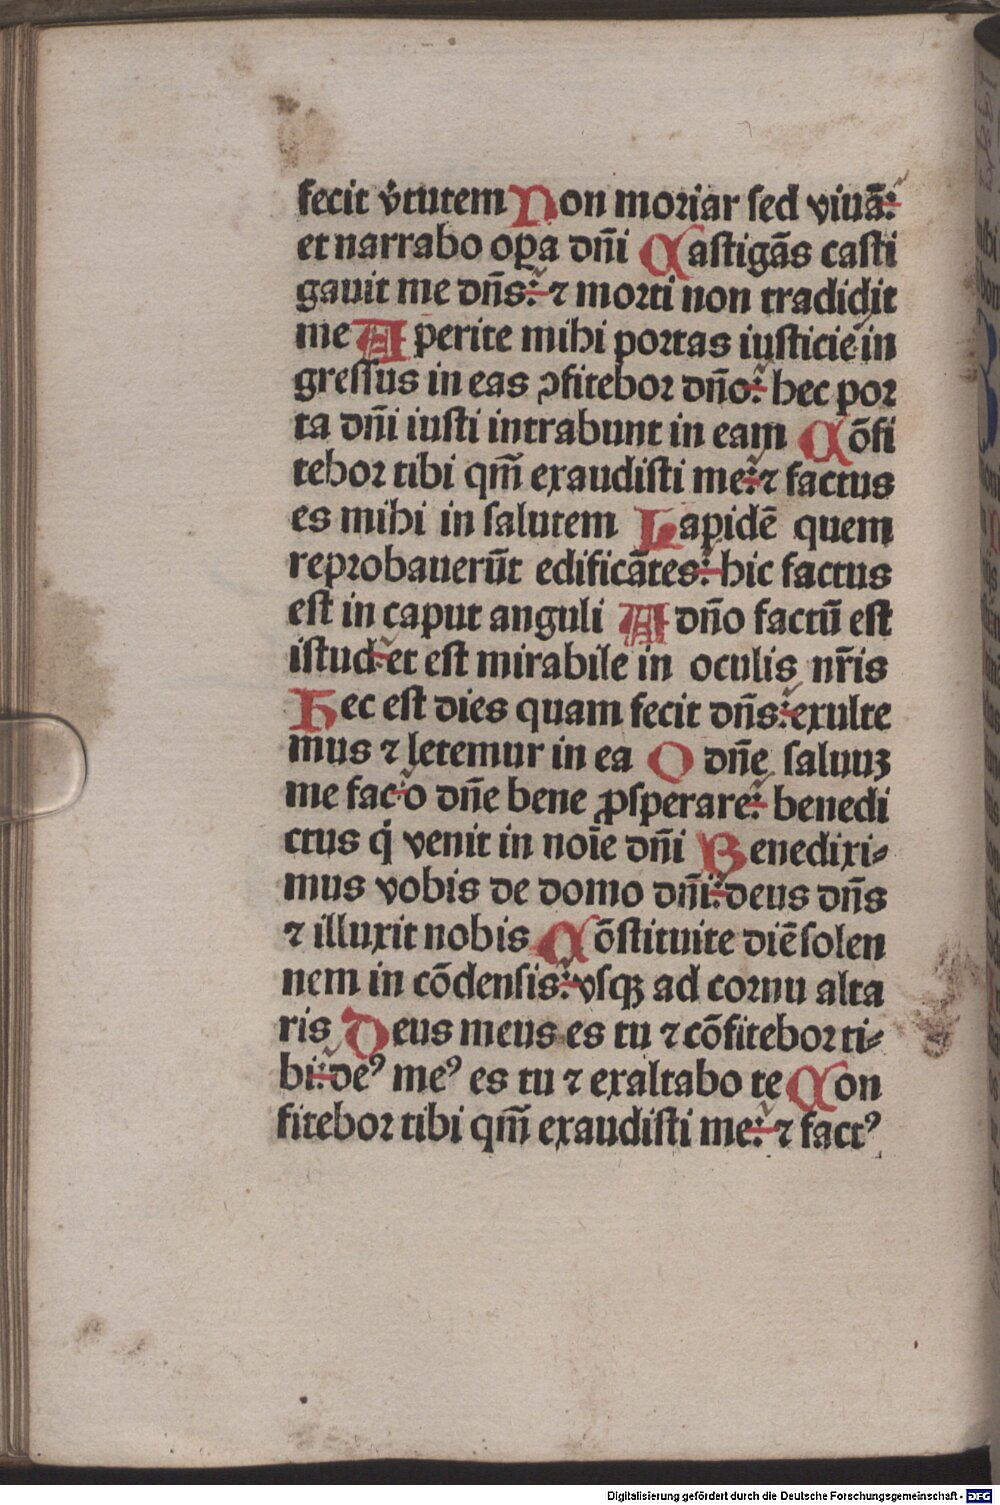 fecit v̾tutem Non moriar sed viuā:
et narrabo oꝑa dn̄i Castigās casti
gauit me dn̄s: ⁊ morti non tradidit
me Aperite mihi portas iusticie in
gressus in eas ꝯfitebor dn̄o: hec por
ta dn̄i iusti intrabunt in eam Cōfi
tebor tibi qm̄ exaudisti me: ⁊ factus
es mihi in salutem Lapidē quem
reprobauerūt edificātes: hic factus
est in caput anguli A dn̄o factū est
istud: et est mirabile in oculis nr̄is
Hec est dies quam fecit dn̄s: exulte
mus ⁊ letemur in ea O dn̄e saluuꝫ
me fac: o dn̄e bene ꝓsperare: benedi
ctus qͥ venit in noīe dn̄i Benedixi-
mus vobis de domo dn̄i: deus dn̄s
⁊ illuxit nobis Cōstituite diē solen
nem in cōdensis: vsqꝫ ad cornu alta
ris Deus meus es tu ⁊ cōfitebor ti-
bi: deꝰ meꝰ es tu ⁊ exaltabo te Con
fitebor tibi qm̄ exaudisti me: ⁊ factꝰ
Digitalisierung gefördert durch die Deutsche Forschungsgemeinschaft - DFG